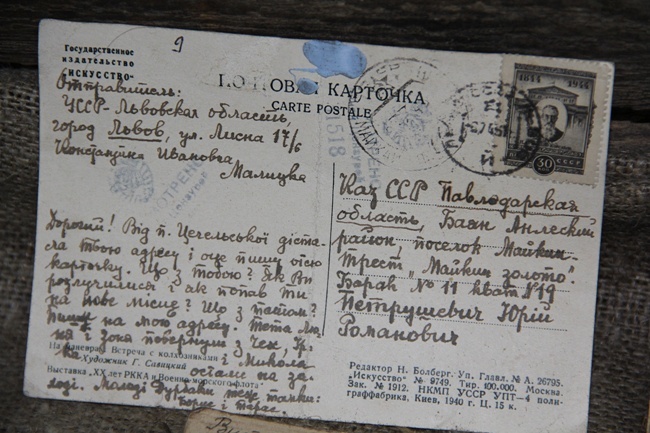 Государственное
издательство
"ИСКУССТВО"
9
ПОЧТОВАЯ КАРТОЧКА
CARTE POSTALE
Отправитель:
УССР-Львовская область,
город Львов, ул. Лисна 17/6
Константина Ивановна
Малицка
1518
1844 1944
30 СССР
Каз ССР Павлодарская
область, Баян Аулеский
район, поселок Майкаин
трест "Майкаин золото".
Барак № 11 кварт № 19
Петрушевич Юрій
Романович
Дорогий! Від п. Цегельської діста-
ла твою адресу і оце пишу оцю
карточку. Що з тобою? Як Ви
розлучилися і як попав ти
на нове місце? Що з татом?
Пиши на мою адресу. Тета Ма-
і Зока повернули з Чех,
Микола
остали на За-
ході. Молоді теж там:
Борис і Тарас.
На маневрах. Встреча с колхозниками
Художник Г. Савицкий
Выставка „XX лет РККА и Военно-морского флота"
Редактор Н. Болберг. Уп. Главл. № А. 26795.
"Искусство" № 9749. Тир. 100.000. Москва.
Зак. № 1912. НКМП УССР УПТ-4 поли-
граффабрика, Киев, 1940 г. Ц. 15 к.